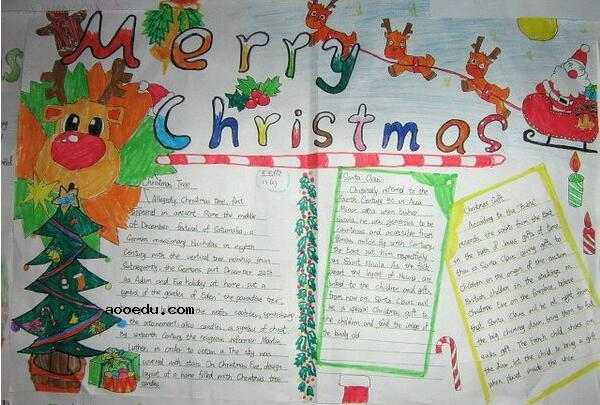 Merry
Christmas
Christmas Tree
Allegedly Christmas tree, first
appeared in ancient Rome the middle
of December festival of Saturnalia, a
German missionary Nicholas in eighth
Century with the vertical tree
Subsequently, the Germans put December 24th
as Adam and Eve holiday at home, put a
symbol of the garden of Eden "the paradise tree"
the cookies, symbolizing
the atonement; also candles, a symbol of christ
by sixteenth Century, the religious reformer Martin
Luther, in order to obtain a The sky was
covered with stars On Christmas Eve, design
layout of a home filled with Christmas tree
candles
aooedu.com
Santa Claus
Originally referred to the
fourth Century BC in Asia
Minor area when bishop
Nicola, he was generous to be
courteous and accessible from
Roman million By sixth Century,
the East put him respectfully
as Saint Nicola As the folk
about the legend of Nicola are
linked to the children and gifts
from now on, Santa Claus will
be a special Christmas gift to
the children and send the image of
the kindly old
Christmas Gift
According to the "Bible"
records, the saints from the East
in the birth of Jesus gifts of time,
this is Santa Claus giving gifts to
Children in the origin of the custom
British children in the stockings on
Christmas Eve on the fireplace, believe
that Santa Claus will be at night from
the big chimney down, bring them to full
socks gift The French child shoes on
the door, let the child to bring a gift
when placed inside the shoe